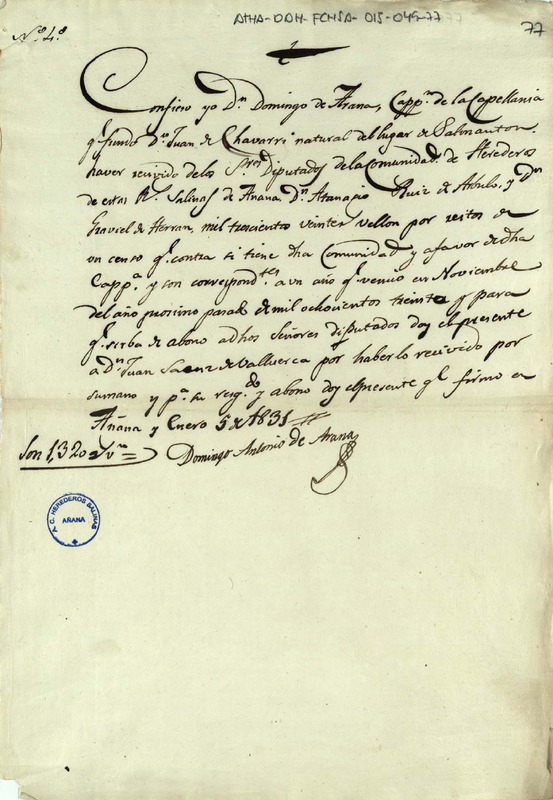 ATHA-DAH-FCHSA-015-049-77
77
Nº 4º
Confieso yo Dn Domingo de Arana, Cappn de la Capellania
qe fundo Dn Juan de Chavarri natural del lugar de Salmanton
haver recivido de los Sres Diputados de la Comunidad de Herederos
de estas Rs Salinas de Anana Dn Atanasio Ruiz de Abalos, y Dn
Graviel de Herran, mil trescientos veinte rs vellon por reitos de
un censo qe contra si tiene dha Comunidad y a favor de dha
Cappa y son correspondtes a un año qe vencio en Noviembre
del año procsimo pasado de mil ochocientos treinta y para
qe sirba de abono a dhos Señores diputados doy el presente
a Dn Juan Saenz de Valluerca por haberlo recivido por
su mano y pa su resgdo y abono doy el presente qe firmo en
Añana y Enero 5 de 1831
Son 1,320 rs vn =
Domingo Antonio de Arana
A. C. HEREDEROS SALINAS
AÑANA